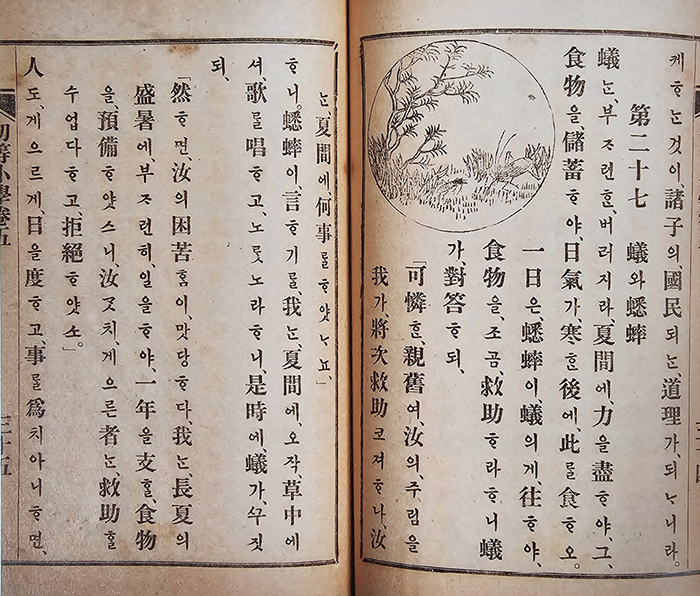 케ᄒᆞᄂᆞᆫ것이、諸子의、國民되ᄂᆞᆫ、道理가、되ᄂᆞ니라。
第二十七 蟻와蟋蟀
蟻ᄂᆞᆫ、부ᄌᆞ런ᄒᆞᆫ、버러지라、夏間에、力을盡ᄒᆞ야、그、
食物을儲蓄ᄒᆞ야、日氣가、寒ᄒᆞᆫ後에、此ᄅᆞᆯ食ᄒᆞ오。
一日은、蟋蟀이、蟻의게、往ᄒᆞ야、
食物을、조곰、救助ᄒᆞ라ᄒᆞ니蟻
가、對答ᄒᆞ되、
「可憐ᄒᆞᆫ、親舊여、汝의、주림을
我가、將次救助코져ᄒᆞ나、汝
ᄂᆞᆫ、夏間에、何事ᄅᆞᆯᄒᆞ얏ᄂᆞ뇨、」
ᄒᆞ니。蟋蟀이、言ᄒᆞ기ᄅᆞᆯ、我ᄂᆞᆫ、夏間에、오작草中에
셔、歌ᄅᆞᆯ唱ᄒᆞ고、노ᄅᆞᆺ노라ᄒᆞ니、是時에、蟻가、ᄭᅮ짓
되、
「然ᄒᆞ면、汝의困苦ᄒᆞᆷ이、맛당ᄒᆞ다、我ᄂᆞᆫ、長夏의
盛暑에、부ᄌᆞ런히、일을ᄒᆞ야、一年을支ᄒᆞᆯ、食物
을、預備ᄒᆞ얏스니、汝ᄀᆞᆺ치、게으른者ᄂᆞᆫ、救助ᄒᆞᆯ
수업다ᄒᆞ고、拒絕ᄒᆞ얏소。」
人도、게으르게、日을度ᄒᆞ고、事ᄅᆞᆯ爲치아니ᄒᆞ면、
初等小學卷五
三十五